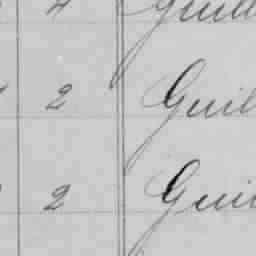 4 Guill
2 Guil
2 Gui